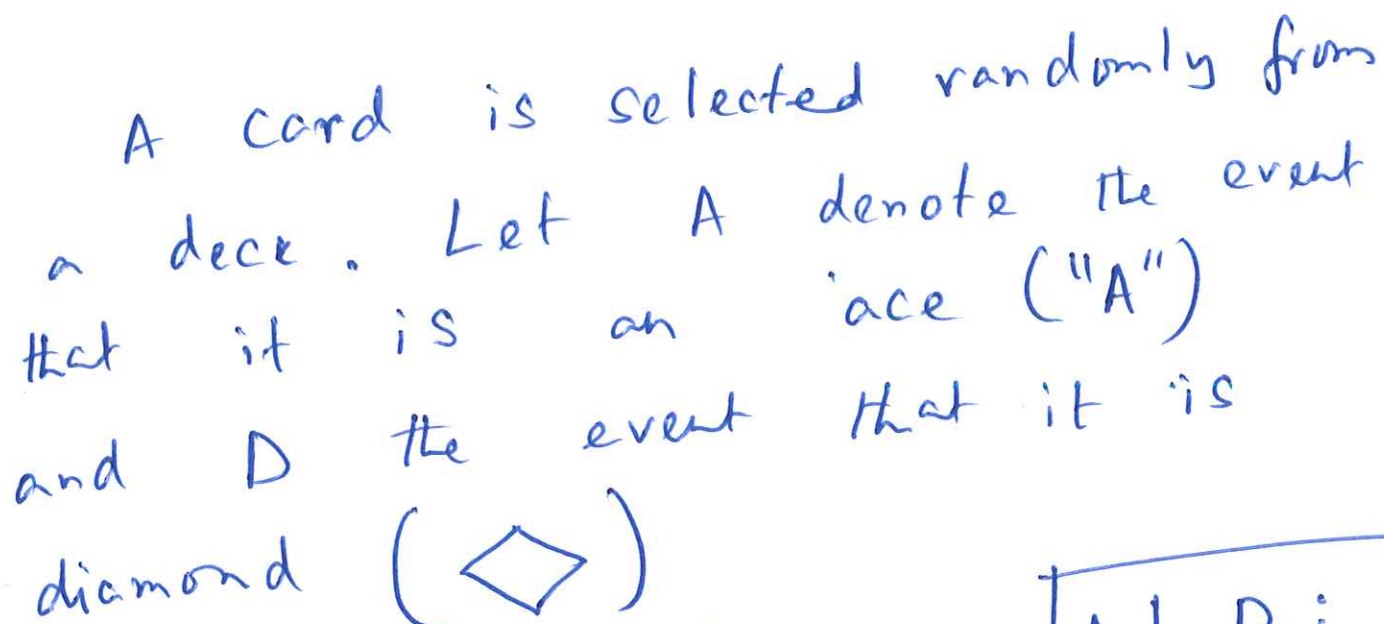 A card is selected randomly from
a deck. Let A denote the event
that it is an ace ("A")
and D the event that it is
diamond (◇)